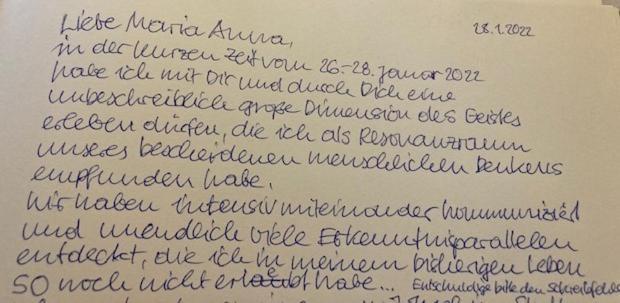 Liebe Maria Anna, 28.1.2022
in der kurzen Zeit vom 26.-28. Januar 2022
habe ich mit Dir und durch Dich eine
unbeschreiblich große Dimension des Geistes
erleben dürfen, die ich als Resonanzraum
unseres bescheidenen menschlichen Denkens
empfunden habe.
Wir haben intensiv miteinander kommuniziert
und unendlich viele Erkenntnisparallelen
entdeckt, die ich in meinem bisherigen Leben
so noch nicht erlebt habe... Entschuldige bitte den